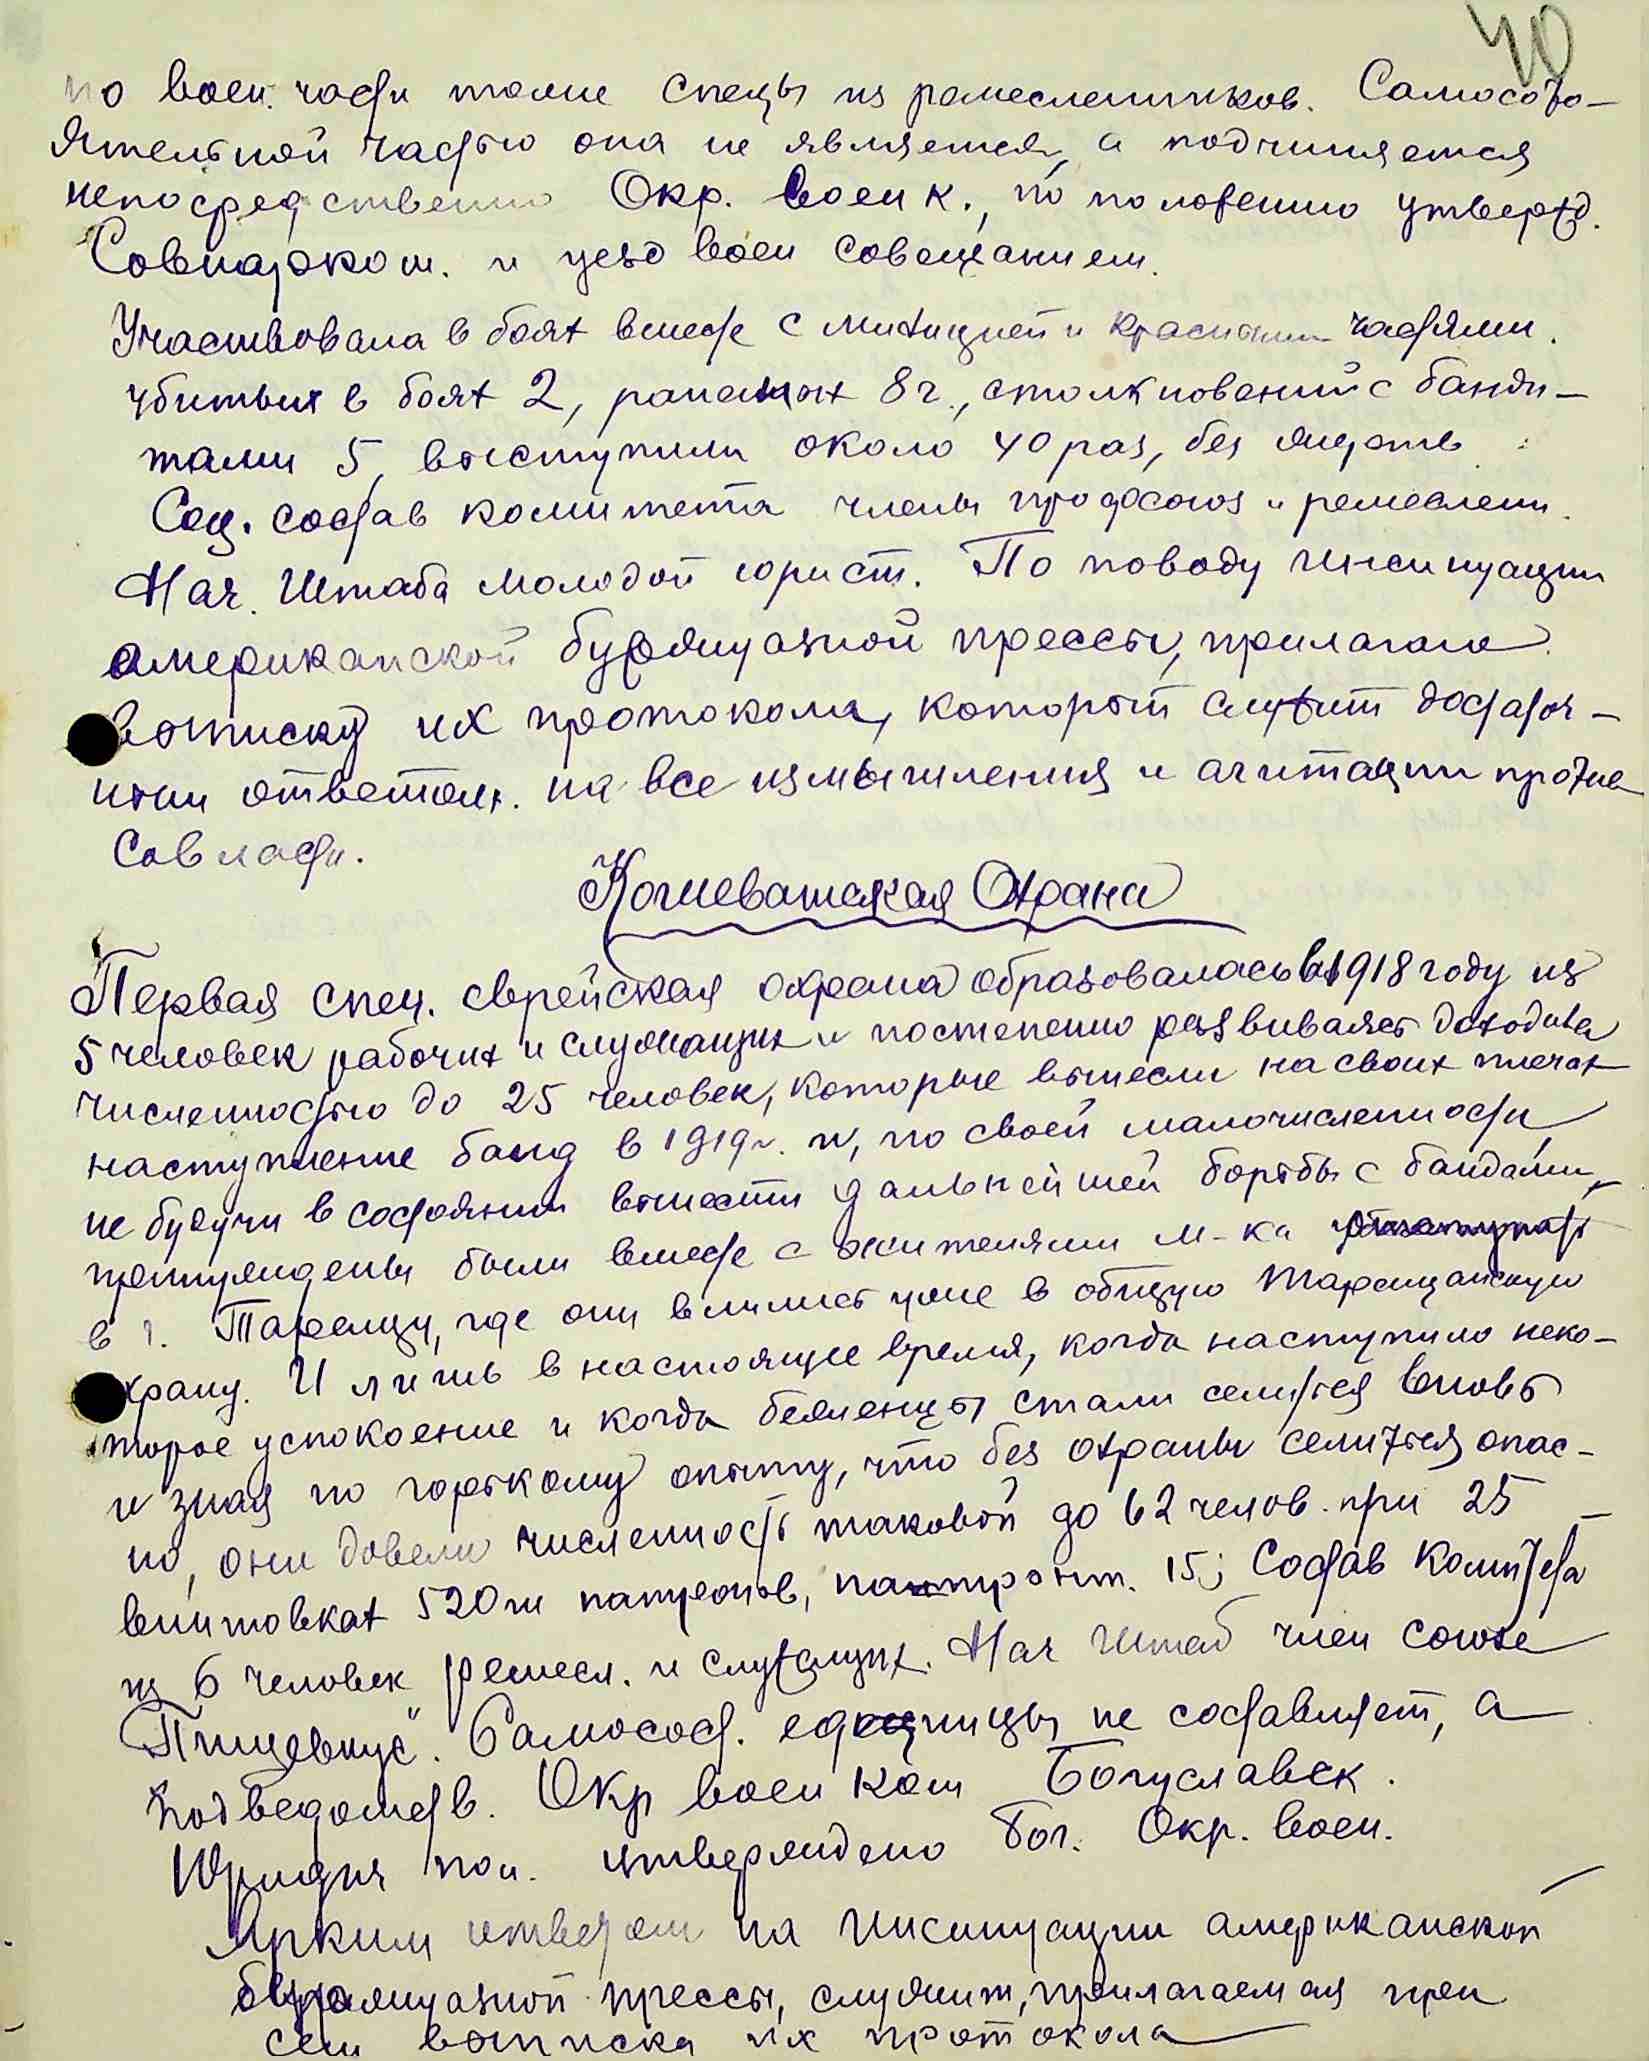 40
по воен. части тоже спецы из ремесленников. Самосто-
ятельной частью она не является, а подчиняется
непосредственно Окр. Военк., по положению утвержд.
Совнарком. и уезд воен совещанием.
Участвовала в боях вместе с милицией и красными частями.
убитых в боях 2, раненых 8 ч., столкновений с банди-
тами 5, выступили около 40 раз, без жертв
Соц. состав комитета члены профсоюз и ремеслен.
Нач. Штаба молодой юрист. По поводу инсинуации
американской буржуазной прессы, прилагаю
выписку их протокола, который служит достаточ-
ным ответом. на все измышления и агитации против
Совласти.
Кошеватская Охрана
Первая спец. еврейская охрана образовалась в 1918 году из
5 человек рабочих и служащих и постепенно развиваясь доходила
численностью до 25 человек, которые вынесли на своих плечах
наступление банд в 1919 г. и, по своей малочисленности,
не будучи в состоянии вынести дальнейшей борьбы с бандами,
принуждены были вместе с жителями м-ка отступать
в г. Таращу, где они влились уже в общую Таращанскую
охрану. И лишь в настоящее время, когда наступило неко-
торое успокоение и когда беженцы стали селиться вновь
и зная по горькому опыту, что без охраны селиться опас-
но, они довели численность таковой до 62 челов. при 25
винтовках 520 ти патронов, патронт. 15; Состав Комитета
из 6 человек ремесл. и служащих. Нач Штаб член союза
"Пищевкус". Самосост. единицы не составляет, а
подведомств. Окр воен ком Богуславск.
Юридич пол. утверждено Бог. Окр. воен.
Ярким ответом на инсинуации американской
буржуазной прессы, служит, прилагаемая при
сем выписка их протокола